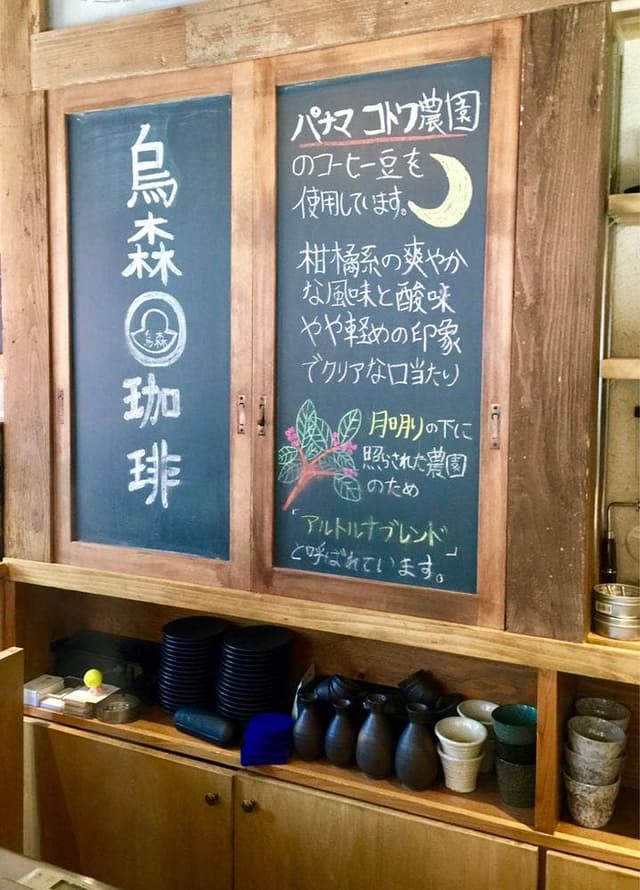 烏森
烏森
珈琲
パナマ コトワ農園
のコーヒー豆を
使用しています。
柑橘系の爽やか
な風味と酸味
やや軽めの印象
でクリアな口当たり
月明りの下に
照らされた農園
のため
「アルトルナブレンド」
と呼ばれています。